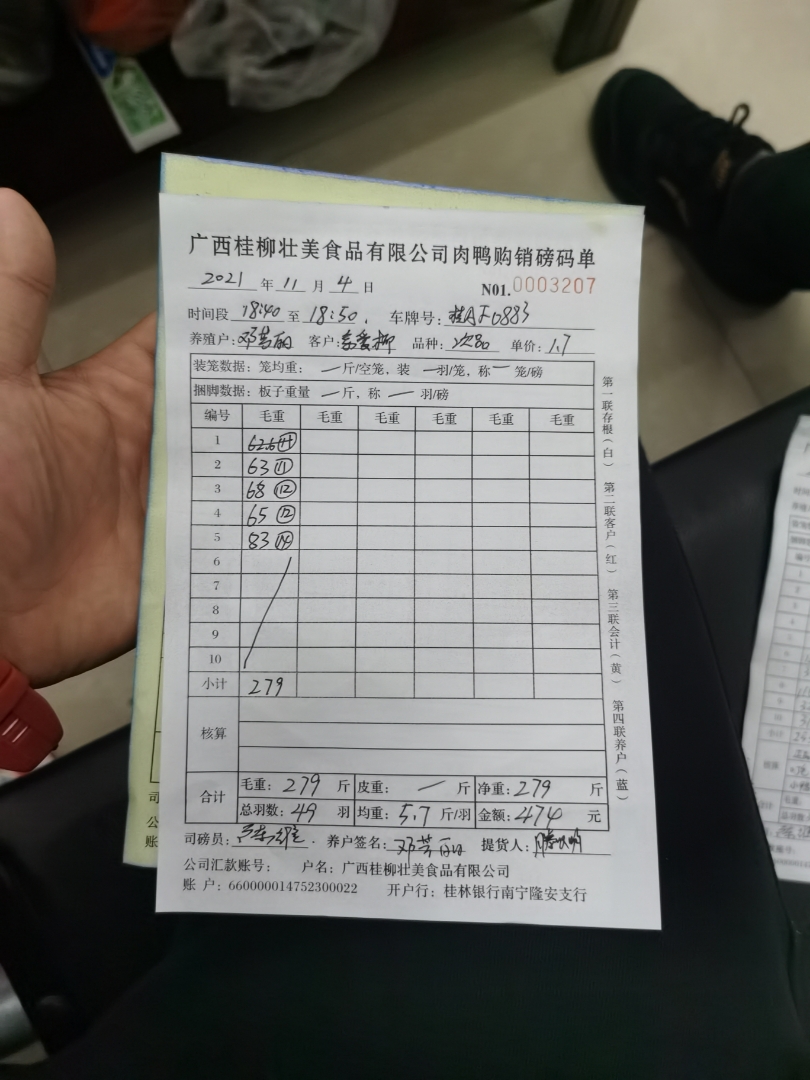 广西桂柳壮美食品有限公司肉鸭购销磅码单
2021 年 11 月 4 日 N01.0003207
时间段 18:40 至 18:50. 车牌号: F0883
养殖户: 邓芳丽 客户: 品种: 次品 单价: 1.7
装笼数据: 笼均重: — 斤/空笼, 装 — 羽/笼, 称 — 笼/磅
捆脚数据: 板子重量 — 斤, 称 — 羽/磅
编号 毛重 毛重 毛重 毛重 毛重 毛重
1
2 63 ⑪
3 68 ⑫
4 65 ⑫
5 83 ⑭
6
7
8
9
10
小计 279
核算
合计 毛重: 279 斤 皮重: — 斤 净重: 279 斤
总羽数: 49 羽 均重: 5.7 斤/羽 金额: 474 元
司磅员: 养户签名: 邓芳丽 提货人:
公司汇款账号: 户名: 广西桂柳壮美食品有限公司
账 户: 660000014752300022 开户行: 桂林银行南宁隆安支行
第一联存根(白)
第二联客户(红)
第三联会计(黄)
第四联养户(蓝)